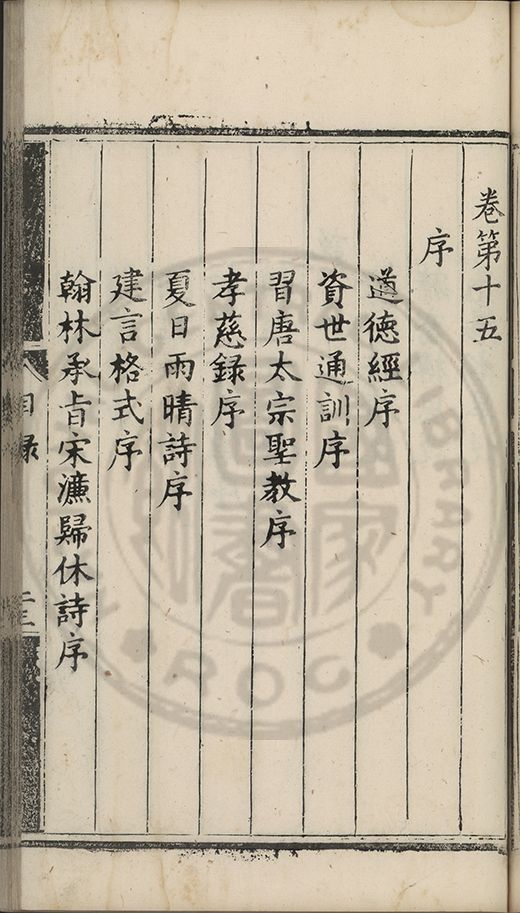 卷第十五
序
道德經序
資世通訓序
習唐太宗聖教序
孝慈錄序
夏日雨晴詩序
建言格式序
翰林承旨宋濂歸休詩序
目錄